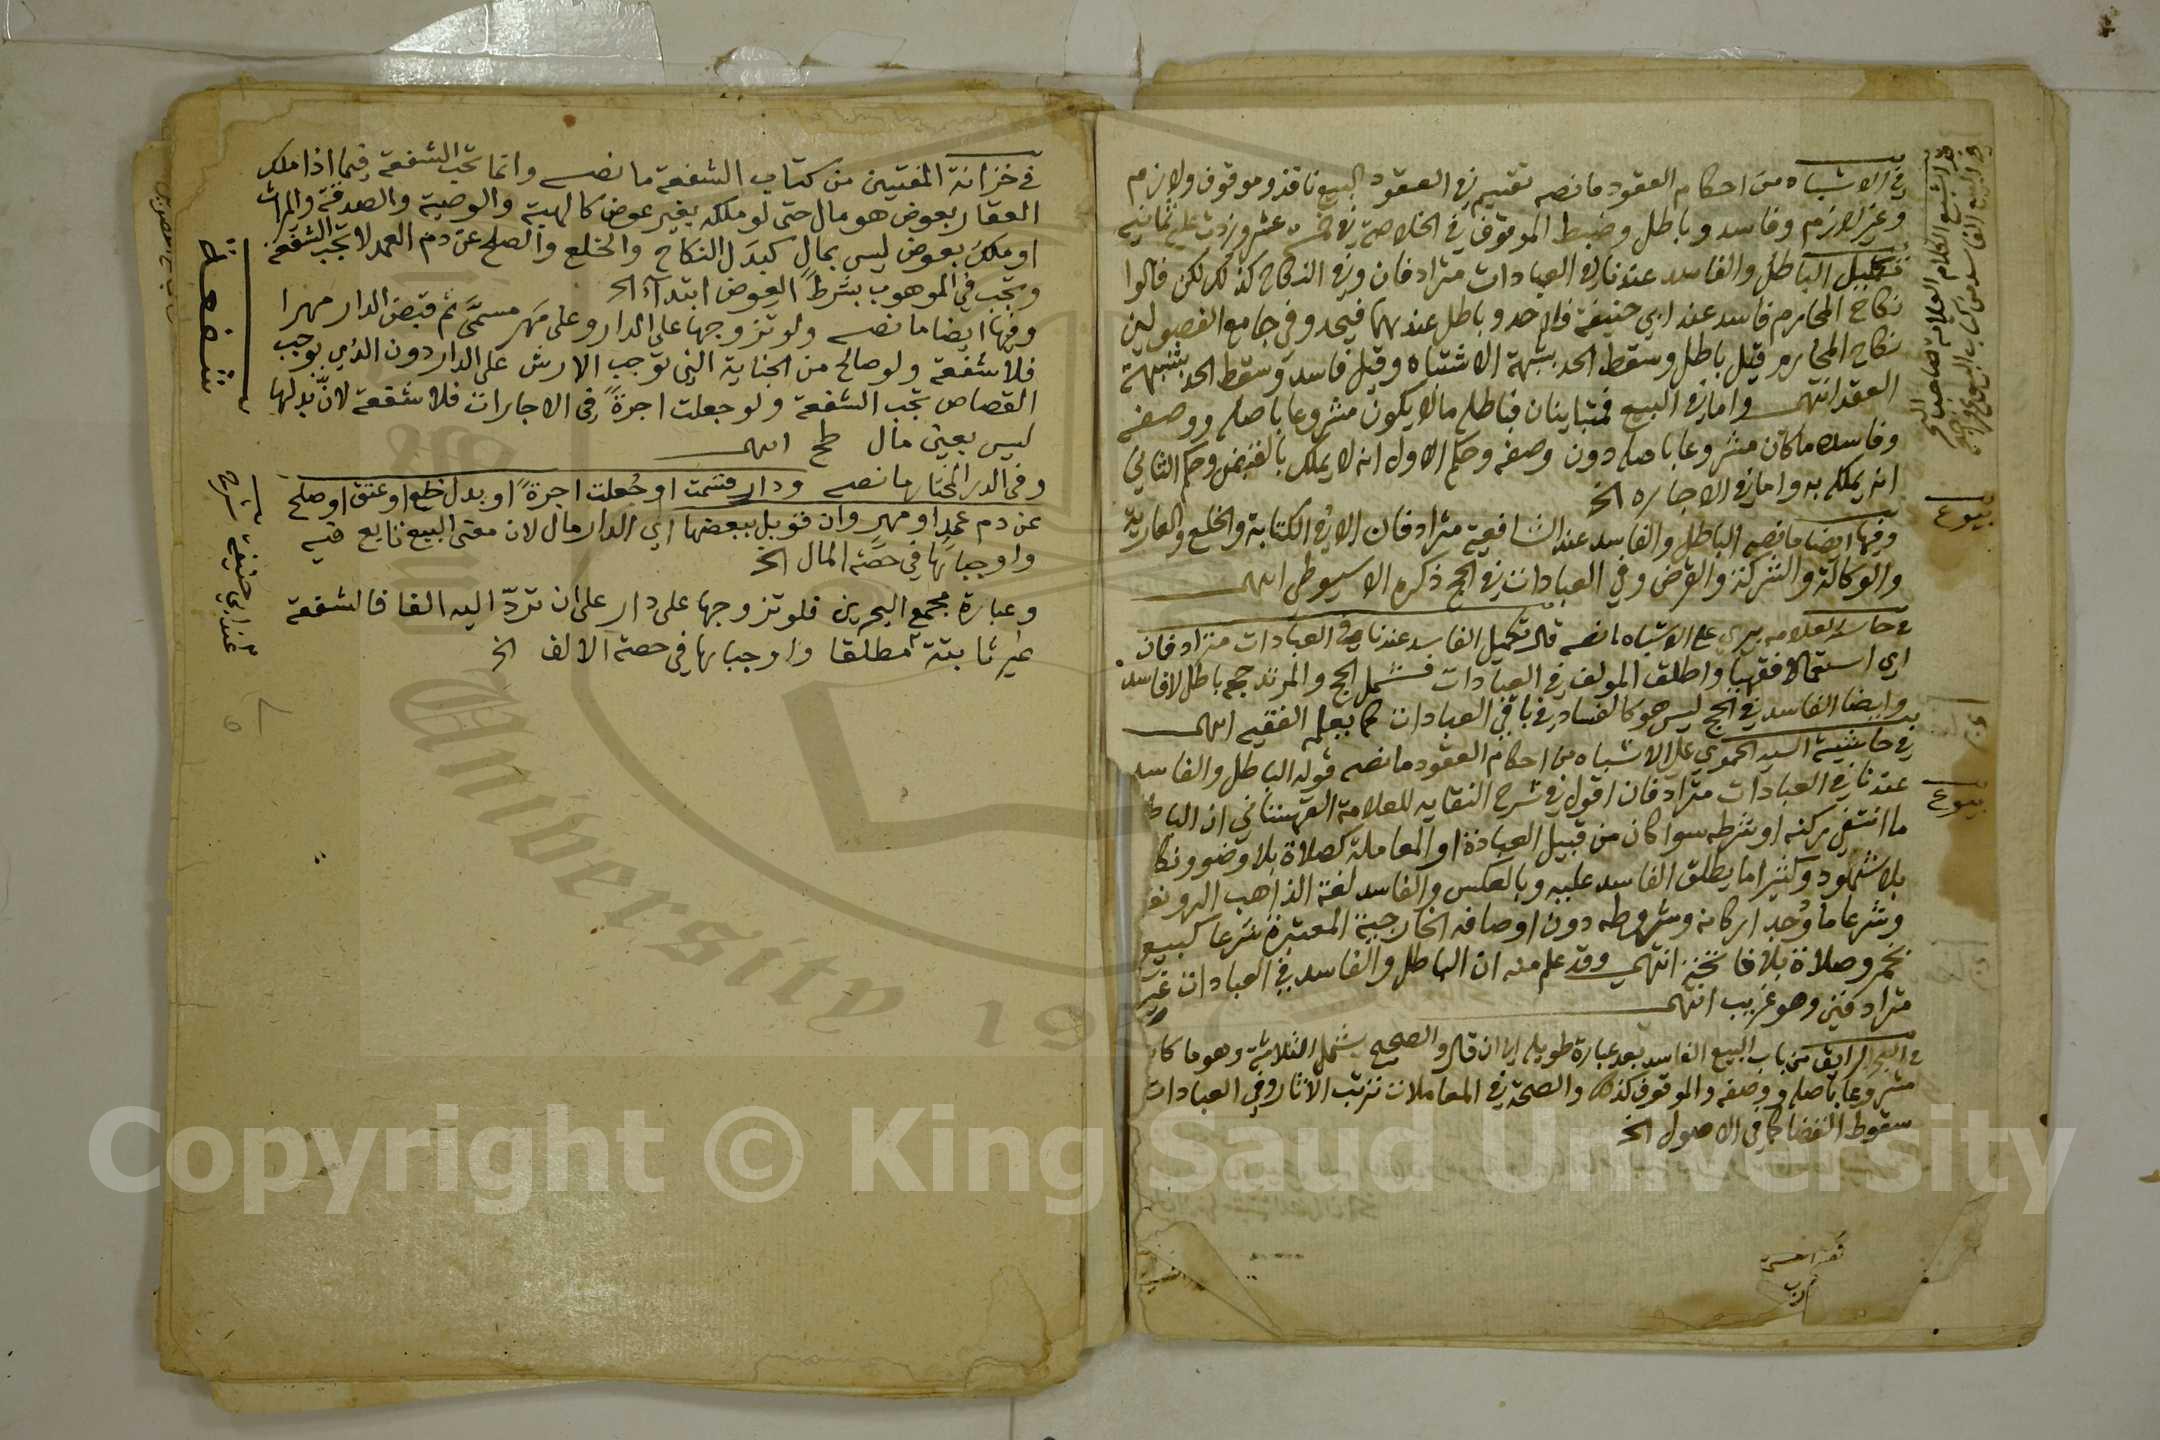 في الاشباه من احكام العقود ما نصه تقسيم في العقود البيع نافذ وموقوف ولازم
وغير لازم وفاسد وباطل وضبط الموقوف في الخلاصة في خمسة عشر وزدت عليه ثمانية
تكميل الباطل والفاسد عندنا في العبادات مترادفان وفي النكاح كذلك لكن قالوا
نكاح المحارم فاسد عند ابي حنيفة فلا حد وباطل عندهما فيحد وفي جامع الفصولين
نكاح المحارم قيل باطل وسقط الحد بشبهة الاشتباه وقيل فاسد وسقط الحد بشبهة
العقد انتهى واما في البيع فمتباينان فباطله ما لا يكون مشروعا باصله ووصفه
وفاسده ما كان مشروعا باصله دون وصفه وحكم الاول انه لا يملك بالقبض وحكم الثاني
انه يملك به واما في الاجارة الخ
وفيها ايضا ما نصه الباطل والفاسد عند الشافعية مترادفان الا في الكتابة والخلع والعارية
والوكالة والشركة والقرض وفي العبادات في الحج ذكره الاسيوطي انتهى
في حاشية العلامه بيري على الاشباه ما نصه قال تكميل الفاسد عندنا في العبادات مترادفان
اي استعمالا فقهيا واطلق المولف في العبادات فشمل الحج والمرتد حجه باطل لا فاسد
وايضا الفاسد في الحج ليس هو كالفساد في باقي العبادات كما يعلم الفقيه انتهى
في حاشية السيد الحموي على الاشباه من احكام العقود ما نصه قوله الباطل والفاسد
عندنا في العبادات مترادفان اقول في شرح النقايه للعلامة القهستاني ان الباطل
ما انتفى ركنه او شرطه سوا كان من قبيل العبادة او المعاملة كصلاة بلا وضو ونكا
بلا شهود وكثيرا ما يطلق الفاسد عليه وبالعكس والفاسد لغة الذاهب الرونق
وشرعا ما وُجد اركانه وشروطه دون اوصافه الخارجية المعتبرة شرعا كبيع
بخمر وصلاة بلا فاتحة انتهى وقد علم منه ان الباطل والفاسد في العبادات غير
مترادفين وهو غريب انتهى
في البحر الرايق من باب البيع الفاسد بعد عبارة طويله الى ان قال والصحيح يشمل الثلاثة وهو ما كان
مشروعا باصله ووصفه والموقوف كذلك والصحة في المعاملات ترتب الاثار وفي العبادات
سقوط القضا كما في الاصول الخ
بيوع
بيوع
في خزانة المفتيين من كتاب الشفعة ما نصه وانما تجب الشفعة فيما اذا ملك
العقار بعوض هو مال حتى لو ملكه بغير عوض كالهبة والوصية والصدقة والميراث
او ملك بعوض ليس بمال كبدل النكاح والخلع والصلح عن دم العمد لا تجب الشفعة
وتجب في الموهوب بشرط العوض ابتداءً الخ
وفيها ايضا ما نصه ولو تزوجها على الدار وعلى مهر مسمى ثم قبض الدار مهرا
فلا شفعة ولو صالح من الجناية التي توجب الارش على الدار دون الذي يوجب
القصاص تجب الشفعة ولو جعلت اجرةً في الاجارات فلا شفعة لان بدلها
ليس بعين مال طح انتهى
وفي الدر المختار ما نصه ودار قسمت او جُعلت اجرةً او بدل خلع او عتق او صلح
عن دم عمد او مهر وان قوبل ببعضها اي الدار مال لان معنى البيع تابع فيه
واوجباها في حصة المال الخ
وعبارة مجمع البحرين فلو تزوجها على دار على ان تردّ اليه الفا فالشفعة
غير ثابتة مطلقا واوجباها في حصة الالف الخ
شفعة
عند ابي حنيفة شرح
Copyright © King Saud University
University 195